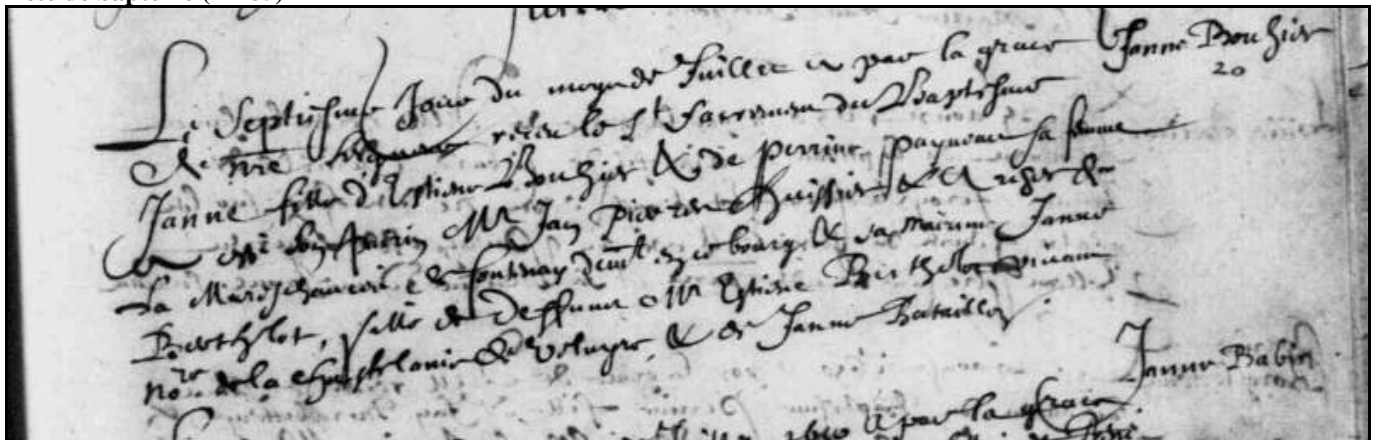 Janne Bouhier
20
Le Septiesme Jour du moys de Juillet a par la grace
de nre Seigneur receu le St Sacrement du Baptesme
Janne fille d'Estiene Bouhier & de Perrine Payneau sa femme
a esté son parin Mr Jan huissier & archer de
la Mareschaucee de Fontenay demt en ce bourg & sa marinne Janne
Berthelot, fille de deffunct Mr Estiene Berthelot vivant
nore de la Chastelanie de & de Janne Bataille
Janne Babin
a par la grace